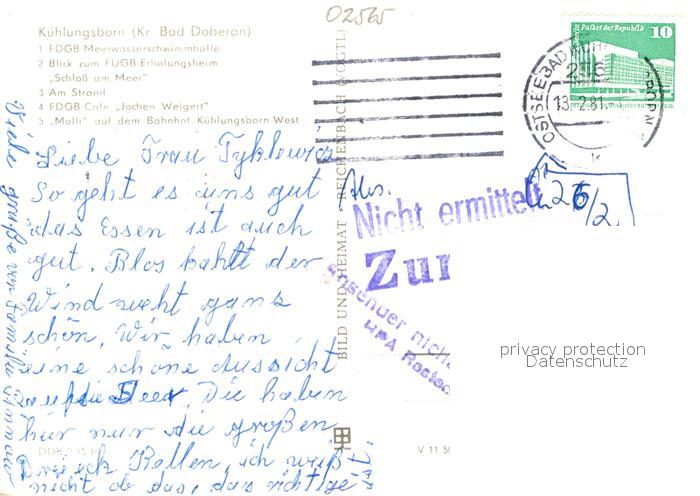 02565
Kühlungsborn (Kr. Bad Doberan)
1 FDGB-Meerwasserschwimmhalle
2 Blick zum FDGB-Erholungsheim
„Schloß am Meer“
3 Am Strand
4 FDGB-Cafe „Jochen Weigert“
5 „Molli“ auf dem Bahnhof Kühlungsborn West
Liebe Frau
So geht es uns gut
das Essen ist auch
gut. Blos kahlt der
Wind weht ganz
schön. Wir haben
eine schöne Aussicht
auf die See. Die haben
hier nur die großen
Dreieck Rollen, ich weiß
nicht ob das, das richtige
ist
Viele grüße von Familie
BILD UND HEIMAT REICHENBACH (VOGTL)
V 11 50
Palast der Republik
10
OSTSEEBAD KÜHLUNGSBORN
13.-2.81
Abs.
Nicht ermittelt
Zur
Absender nicht
HPA Rostoc
26/2.
privacy protection
Datenschutz